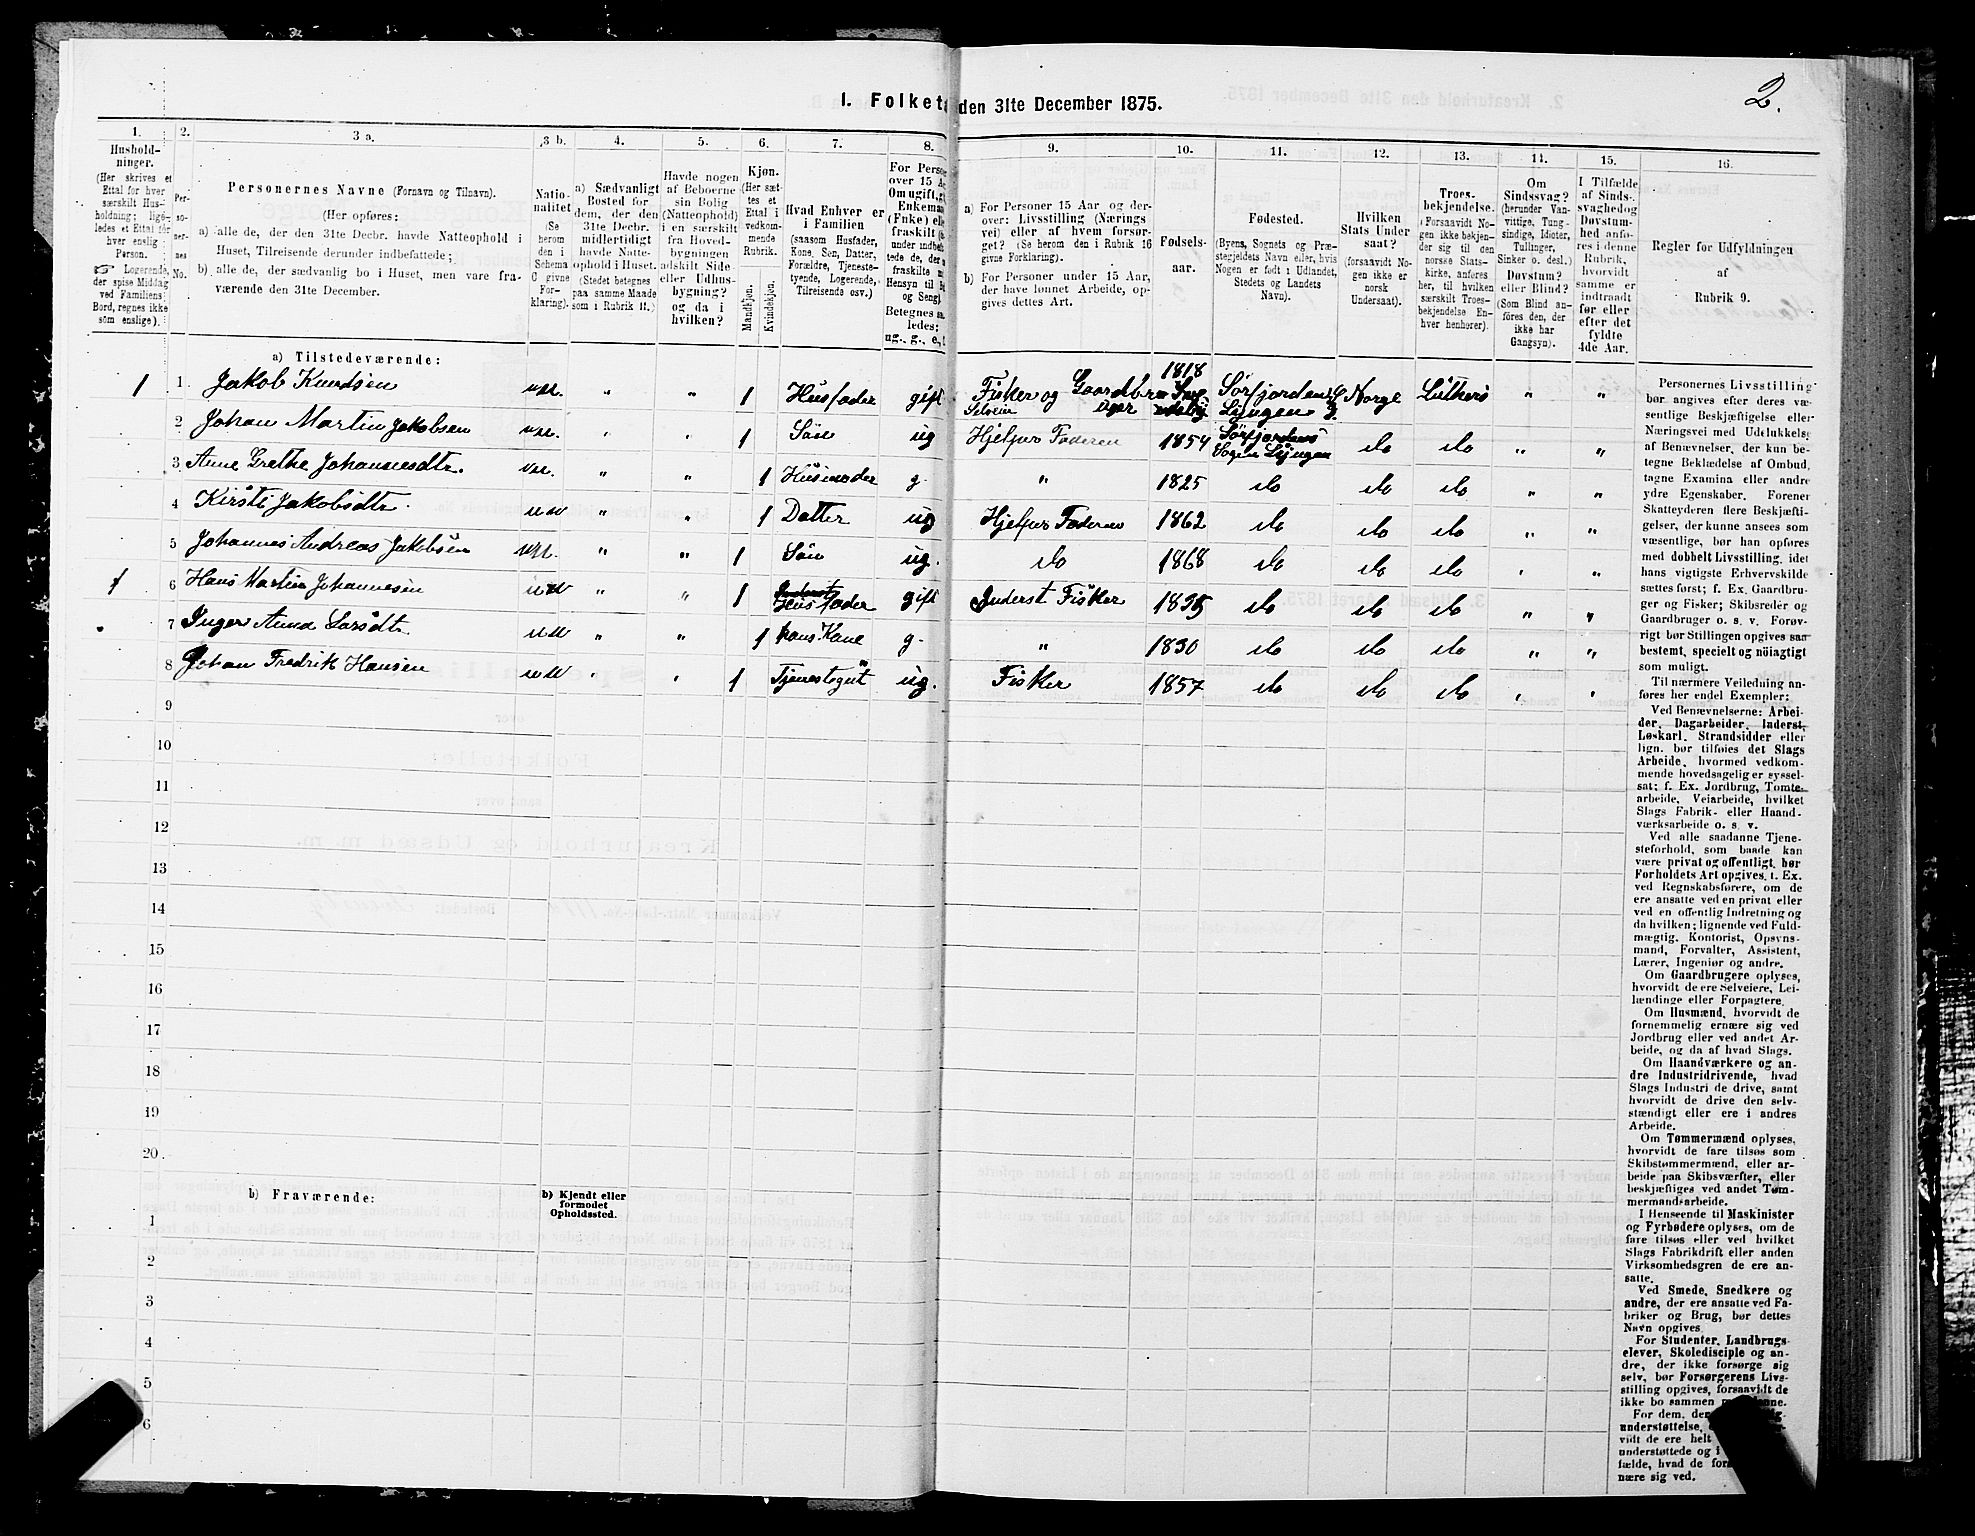 1. Folket den 31te December 1875.
2.
1.
2.
3 a.
3 b.
4.
5.
6.
7.
8.
9.
10.
11.
12.
13.
14.
15.
16.
Hushold-
ninger.
(Her skrives et
Ettal for hver
særskilt Hus-
holdning; lige-
ledes et Ettal for
hver enslig
Person.
☞ Logerende,
der spise Middag
ved Familiens
Bord, regnes ikke
som enslige).
Per-
so-
ner-
nes
No.
Personernes Navne (Fornavn og Tilnavn).
(Her opføres:
a) alle de, der den 31te Decbr. havde Natteophold i
Huset, Tilreisende derunder indbefattede;
b) alle de, der sædvanlig bo i Huset, men vare fra-
værende den 31te December.
Natio-
nalitet
(Se
herom
den i
Schema
C givne
For-
klaring).
a) Sædvanligt
Bosted for
dem, der den
31te Decbr.
midlertidigt
havde Natte-
ophold i Huset.
(Stedet betegnes
paa samme Maade
som i Rubrik 11.)
Havde nogen
af Beboerne
sin Bolig
(Natteophold)
i en særskilt
fra Hoved-
bygningen
adskilt Side-
eller Udhus-
bygning?
og da i
hvilken?
Kjøn.
(Her sæt-
tes et
Ettal i
vedkom-
mende
Rubrik.
Mandkjøn.
Kvindekjøn.
Hvad Enhver er
i Familien
(saasom Husfader,
Kone, Søn, Datter,
Forældre, Tjeneste-
tyende, Logerende,
Tilreisende osv.)
For Perso
over 15 A
Omugift,
Enkeman
(Fnke) el
fraskilt
Betegnes
ledes:
ug., g., e.,
a) For Personer 15 Aar og der-
over: Livsstilling (Nærings
vei) eller af hvem forsør-
get? (Se herom den i Rubrik 16
givne Forklaring).
b) For Personer under 15 Aar,
der have lønnet Arbeide, op-
gives dettes Art.
Fødsels-
aar.
Fødested.
(Byens, Sognets og Præ-
stegjeldets Navn eller, hvis
Nogen er født i Udlandet,
Stedets og Landets
Navn).
Hvilken
Stats Under
saat?
(forsaavidt No-
gen ikke er
norsk
Undersaat).
Troes-
bekjendelse.
(Forsaavidt No-
gen ikke bekjen-
der sig til den
norske Stats-
kirke, anføres
her, til hvilken
særskilt Troes-
bekjendelse En-
hver henhører).
Om
Sindssvag?
(herunder Van-
vittige, Tung-
sindige, Idioter,
Tullinger,
Sinker o. desl.)
Døvstum?
eller Blind?
(Som Blind an-
føres den, der
ikke har
Gangsyn).
I Tilfælde
af Sinds-
svaghedog
Døvstum-
hed anfø-
res i denne
Rubrik,
hvorvidt
samme er
indtraadt
før eller
efter det
fyldte
4de Aar.
Regler for Udfyldningen
af
Rubrik 9.
a) Tilstedeværende:
1 1. Jakob Knudsen nor. " " 1 Husfader gift Fisker og Gaardbr Selveier 1818 Sørfjordens Lyngen Norge Luthers " "
2 Johan Martin Jakobsen nor. " " 1 Søn ug Hjelper Faderen 1854 Sørfjordens Sogn Lyngen do do " "
3 Anne Grethe Johannesdtr. nor. " " 1 Husmoder g. " 1825 do do do " "
4 Kirsti Jakobsdtr. " " 1 Datter ug Hjelper Faderen 1862 do do do " "
5 Johannes Andreas Jakobsen " " 1 Søn ug. do 1868 do do do " "
1 6 Hans Martin Johannesen " " 1 Inderst Husfader gift Inderst Fisker 1835 do do do " "
7 Inger Anna Larsdtr " " 1 hans Kone g. " 1830 do do do " "
8 Johan Fredrik Hansen " " 1 Tjenestegut ug. Fisker 1857 do do do " "
9
10
11
12
13
14
15
16
17
18
19
20
b) Fraværende:
b) Kjendt eller
formodet
Opholdssted.
1
2
3
4
5
6
Personernes Livsstilling
bør angives efter deres væ-
sentlige Beskjæftigelse eller
Næringsvei med Udelukkelse
af Benævnelser, der kun be-
tegne Beklædelse af Ombud,
tagne Examina eller andre
ydre Egenskaber. Forener
Skatteyderen flere Beskjæfti-
gelser, der kunne ansees som
væsentlige, bør han opføres
med dobbelt Livsstilling, idet
hans vigtigste Erhvervskilde
sættes først; f. Ex. Gaardbru-
ger og Fisker; Skibsreder og
Gaardbruger o. s. v. Forøv-
rigt bør Stillingen opgives saa
bestemt, specielt og nöiagtigt
som muligt.
Til nærmere Veiledning an-
føres her endel Exempler:
Ved Benævnelserne: Arbei-
der, Dagarbeider, Inderst,
Løskarl, Strandsidder eller
lign. bør tilføies det Slags
Arbeide, hvormed vedkom-
mende hovedsagelig er syssel-
sat; f. Ex. Jordbrug, Tomte-
arbeide, Veiarbeide, hvilket
Slags Fabrik- eller Haand-
værksarbeide o. s. v.
Ved alle saadanne Tjene-
steforhold, som baade kan
være privat og offentligt, bør
Forholdets Art opgives, t. Ex.
ved Regnskabsførere, om de
ere ansatte ved en privat eller
ved en offentlig Indretning og
da hvilken; lignende ved Fuld-
mægtig, Kontorist, Opsyns-
mand, Forvalter, Assistent,
Lærer, Ingeniør og andre.
Om Gaardbrugere oplyses,
hvorvidt de ere Selveiere, Lei-
lændinge eller Forpagtere.
Om Husmænd, hvorvidt de
fornemmelig ernære sig ved
Jordbrug eller ved andet Ar-
beide, og da af hvad Slags.
Om Haandværkere og an-
dre Industridrivende, hvad
Slags Industri de drive, samt
hvorvidt de drive den selv-
stændigt eller ere i andres
Arbeide.
Om Tømmermænd oplyses,
hvorvidt de fare tilsøs som
Skibstømmermænd, eller ar-
beide paa Skibsværfter, eller
beskjæftiges ved andet Tøm-
mermandsarbeide.
I Henseende til Maskinister
og Fyrbødere oplyses, om de
fare tilsøs eller ved hvilket
Slags Fabrikdrift eller anden
Virksomhedsgren de ere an-
satte.
Ved Smede, Snedkere og
andre, der ere ansatte ved Fa-
briker og Brug, bør dettes
Navn opgives.
For Studenter, Landbrugs-
elever, Skoledisciple og an-
dre, der ikke forsørge sig
selv, bør Forsørgerens Livs-
stilling opgives, forsaavidt de
ikke bo sammen
For dem, der
understøttelse,
vidt de ere helt
understøttede og i
fælde, hvad de for
nære sig ved.